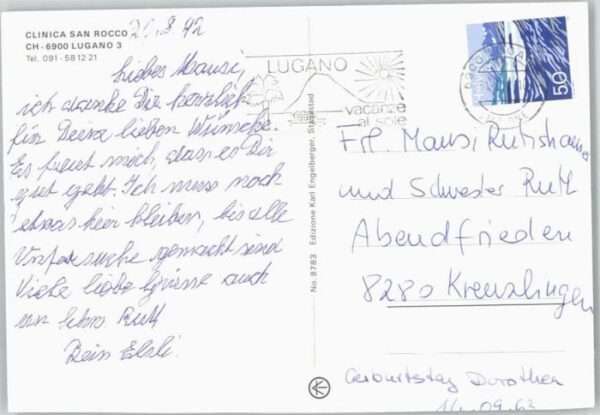 CLINICA SAN ROCCO
CH - 6900 LUGANO 3
Tel. 091 - 58 12 21
20.8.92
liebes Mausi,
ich danke Dir herzlich
für Deine lieben Wünsche.
Es freut mich, dass es Dir
gut geht. Ich muss noch
etwas hier bleiben, bis alle
Untersuche gemacht sind
Viele liebe Grüsse auch
an Schw Ruth
Dein Elsli.
No. 8783 Edizione Karl Engelberger, Stansstad
LUGANO
vacanze
al sole
50
Frl. Mausi Rutishauser
und Schwester Ruth
Abendfrieden
8280 Kreuzlingen
Geburtstag Dorothea